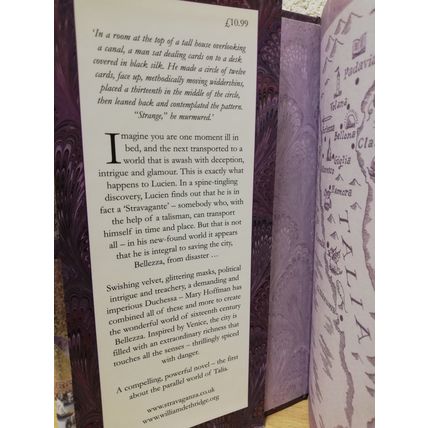 £10.99
‘In a room at the top of a tall house overlooking
a canal, a man sat dealing cards on to a desk
covered in black silk. He made a circle of twelve
cards, face up, methodically moving widdershins,
placed a thirteenth in the middle of the circle,
then leaned back and contemplated the pattern.
“Strange,” he murmured.’
Imagine you are one moment ill in
bed, and the next transported to a
world that is awash with deception,
intrigue and glamour. This is exactly what
happens to Lucien. In a spine-tingling
discovery, Lucien finds out that he is in
fact a ‘Stravagante’ – somebody who, with
the help of a talisman, can transport
himself in time and place. But that is not
all – in his new-found world it appears
that he is integral to saving the city,
Bellezza, from disaster …
Swishing velvet, glittering masks, political
intrigue and treachery, a demanding and
imperious Duchessa – Mary Hoffman has
combined all of these and more to create
the wonderful world of sixteenth century
Bellezza. Inspired by Venice, the city is
filled with an extraordinary richness that
touches all the senses – thrillingly spiced
with danger.
A compelling, powerful novel – the first
about the parallel world of Talia.
www.stravaganza.co.uk
www.williamdethridge.org
Padavia
Bellona
TALIA